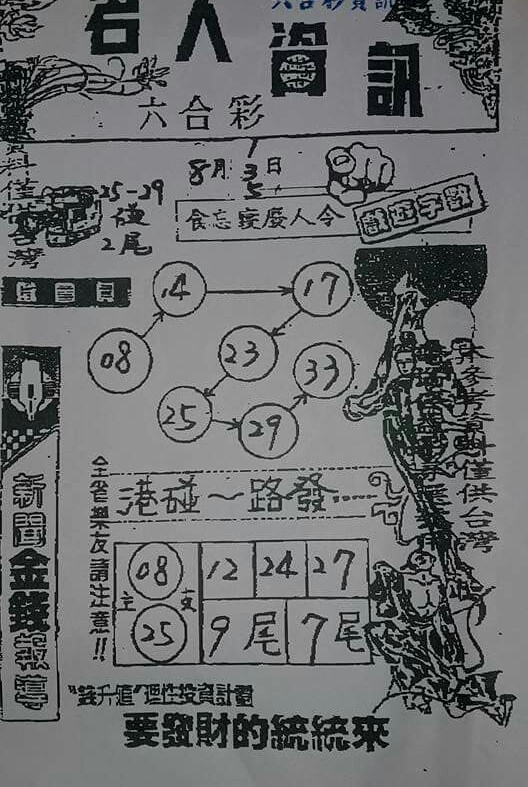 六合彩資訊
名人資訊
六合彩
8月
1
3
5
日
25-29
碰
2尾
令人廢寢忘食
數字遊戲
14
17
08
23
33
25
29
資料僅供台灣
全省樂友請注意!!
港碰~路發……
08
主
支
25
12
24
27
9尾
7尾
新聞金錢報導
"錢升滙"理性投資計劃
要發財的統統來